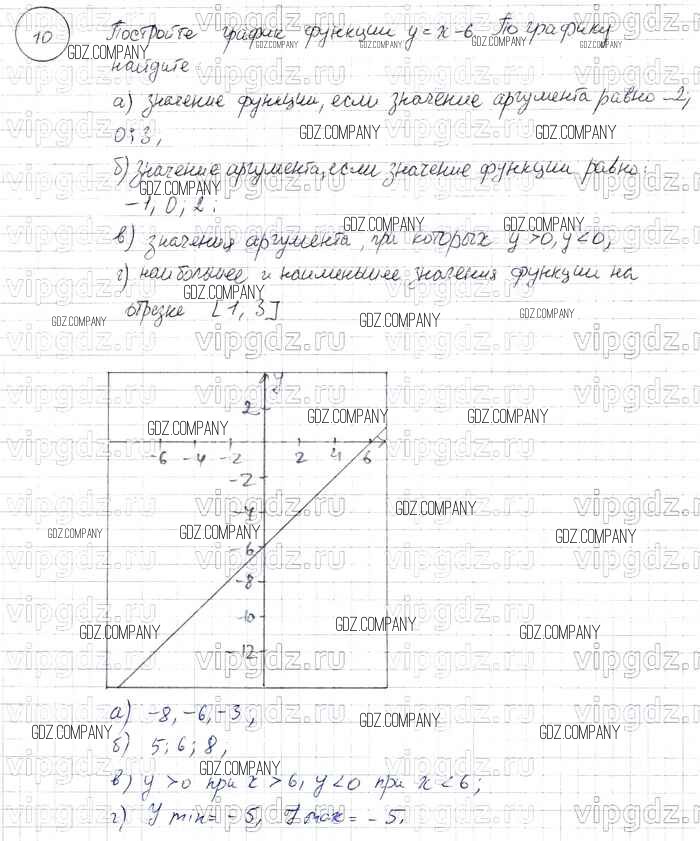 10 Постройте график функции y = x - 6. По графику
найдите
а) значение функции, если значение аргумента равно -2,
0; 3,
б) значение аргумента, если значение функции равно:
-1, 0; 2;
в) значения аргумента, при которых y > 0, y < 0;
г) наибольшее и наименьшее значения функции на
отрезке [1, 3]
y
2
-6 -4 -2 2 4 6
-2
-4
-6
-8
-10
-12
а) -8, -6, -3;
б) 5; 6; 8,
в) y > 0 при x > 6, y < 0 при x < 6;
г) y min = -5, y max = -5.
GDZ.COMPANY
vipgdz.ru